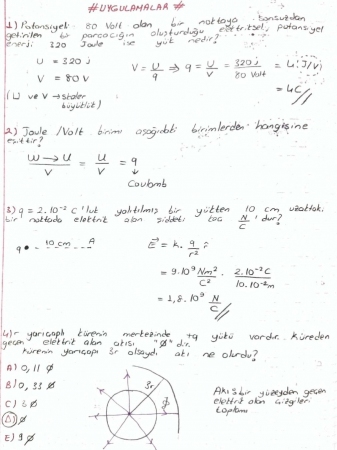 #UYGULAMALAR#
1) Potansiyeli 80 Volt olan bir noktaya sonsuzdan
getirilen bir parçacığın oluşturduğu elektriksel potansiyel
enerji 320 Joule ise yük nedir?
U = 320 j
V = 80 V
(U ve V → skaler
büyüklük)
V = U/q ⇒ q = U/V = 320 j / 80 Volt = 4 (J/V)
= 4C //
2) Joule /Volt birimi aşağıdaki birimlerden hangisine
eşittir?
W → U / V = U/V = q
↓
Coulomb
3) q = 2.10⁻² C'luk yalıtılmış bir yükten 10 cm uzaktaki
bir noktada elektrik alan şiddeti kaç N/C 'dur?
q • - 10 cm - A
E = k. q/r² r
= 9.10⁹ Nm²/C² . 2.10⁻²C / 10.10⁻²m
= 1,8.10⁹ N/C //
4) r yarıçaplı kürenin merkezinde +q yükü vardır. Küreden
geçen elektrik alan akısı "Ø" dir.
Kürenin yarıçapı 3r olsaydı akı ne olurdu?
A) 0,11 Ø
B) 0,33 Ø
C) 3 Ø
D) Ø
E) 9 Ø
3r
Akı: bir yüzeyden geçen
elektrik alan çizgileri
toplamı